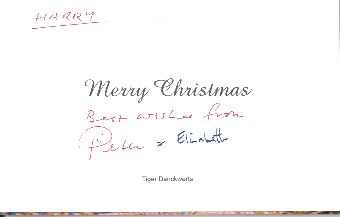 HARRY
Merry Christmas
Best wishes from
Peter & Elizabeth
Tiger Danckwerts